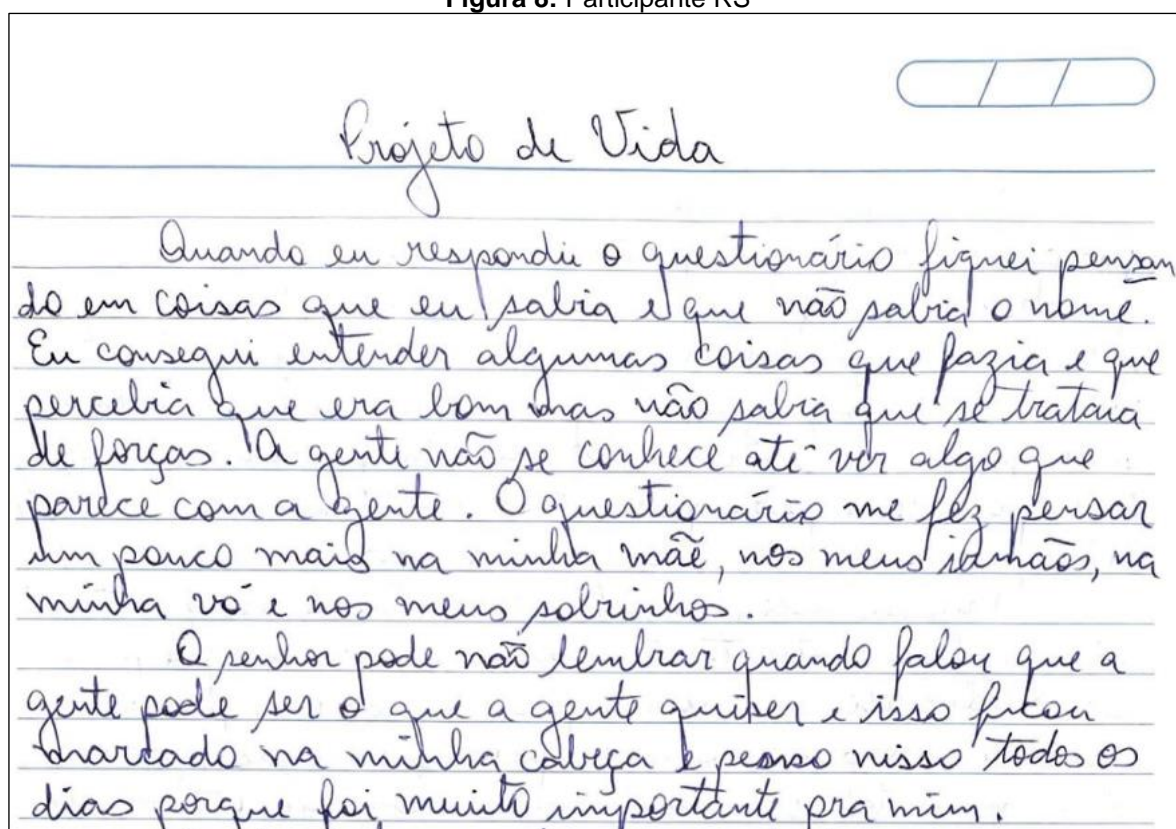 Figura 8: Participante RS
Projeto de Vida
Quando eu respondi o questionário fiquei pensan
do em coisas que eu sabia e que não sabia o nome.
Eu consegui entender algumas coisas que fazia e que
percebia que era bom mas não sabia que se tratava
de forças. A gente não se conhece até ver algo que
parece com a gente. O questionário me fez pensar
um pouco mais na minha mãe, nos meus irmãos, na
minha vó e nos meus sobrinhos.
O senhor pode não lembrar quando falou que a
gente pode ser o que a gente quiser e isso ficou
marcado na minha cabeça e penso nisso todos os
dias porque foi muito importante pra mim.